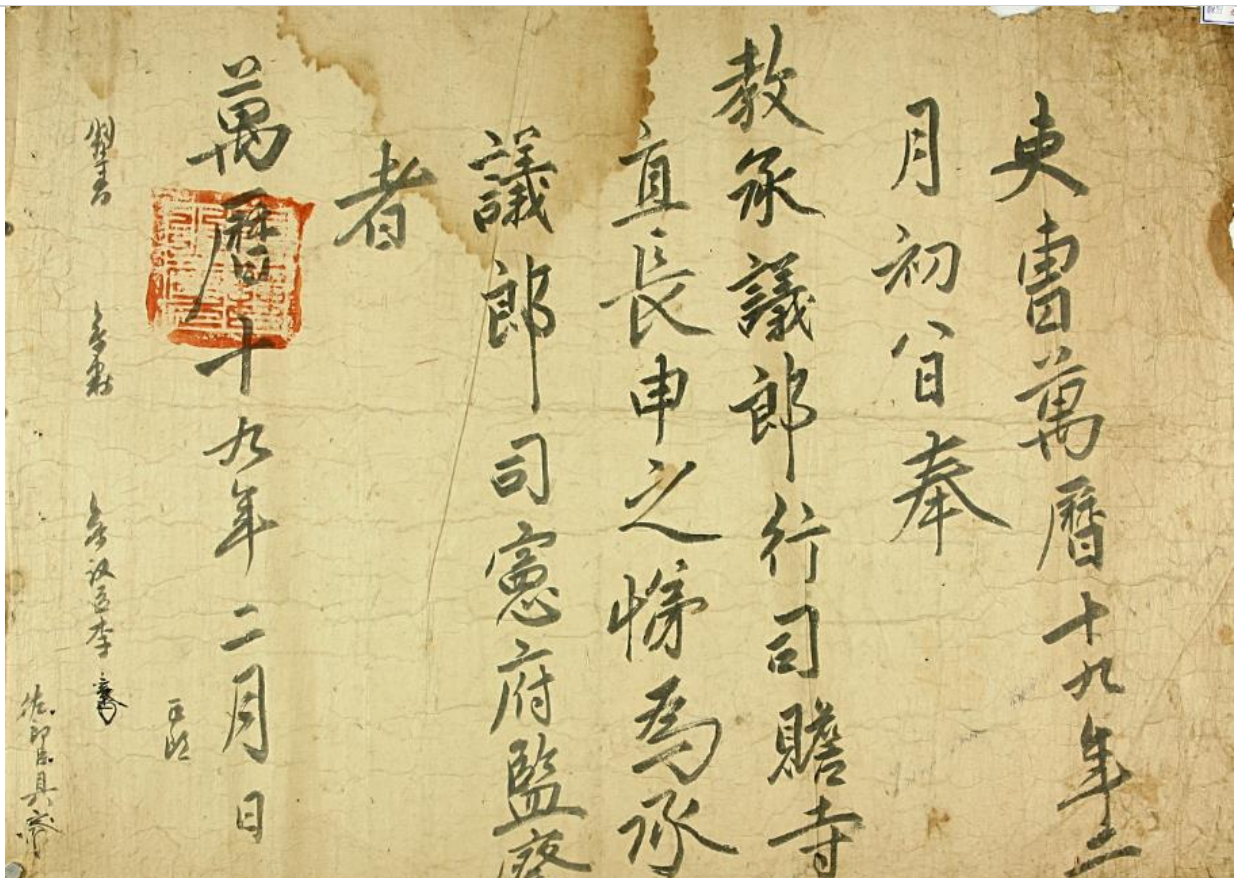 吏曹萬曆十九年二
月初八日奉
教承議郎行司贍寺
直長申之悌爲承
議郎司憲府監察
者
萬曆十九年二月日
判書
參判
參議臣李
正郎
佐郎臣具